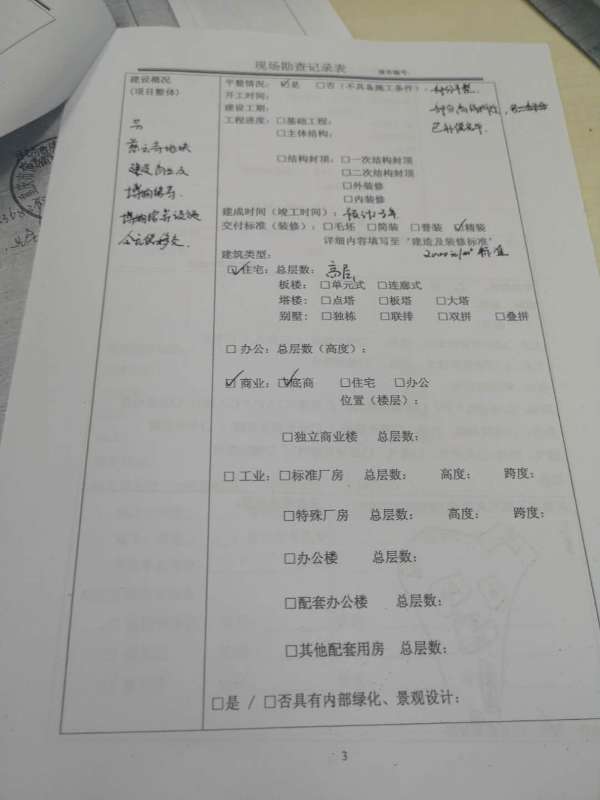 现场勘查记录表
报告编号:
建设概况
(项目整体)
平整情况: ☑是 □否(不具备施工条件): 部分平整.
开工时间:
建设工期:
工程进度: □基础工程:
□主体结构:
□结构封顶: □一次结构封顶
□二次结构封顶
□外装修
□内装修
建成时间(竣工时间):
交付标准(装修): □毛坯 □简装 □普装 ☑精装
详细内容填写至"建造及装修标准"
2000元/m² 标准
建筑类型:
☑住宅: 总层数: 高层
板楼: □单元式 □连廊式
塔楼: □点塔 □板塔 □大塔
别墅: □独栋 □联排 □双拼 □叠拼
□ 办公: 总层数(高度):
☑ 商业: ☑底商 □住宅 □办公
位置(楼层):
□独立商业楼 总层数:
□ 工业: □标准厂房 总层数: 高度: 跨度:
□特殊厂房 总层数: 高度: 跨度:
□办公楼 总层数:
□配套办公楼 总层数:
□其他配套用房 总层数:
□是 / □否具有内部绿化、景观设计:
3